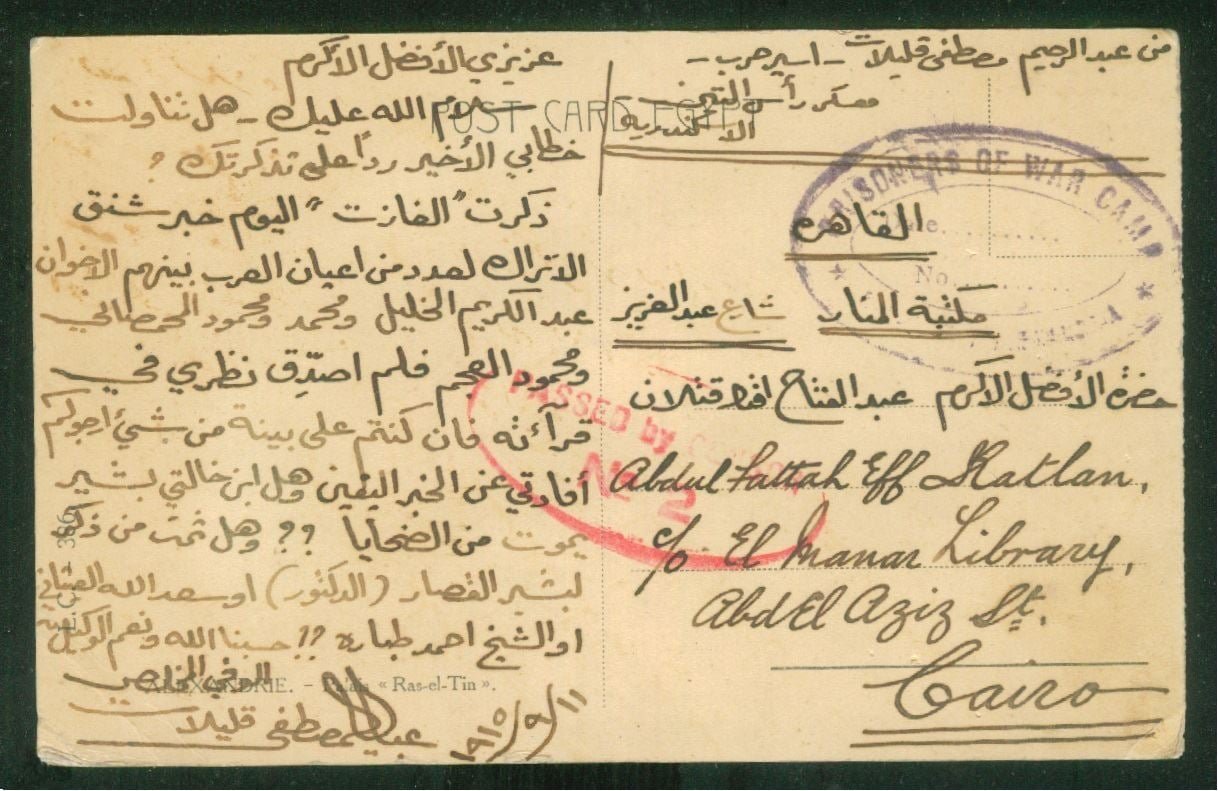 من عبد الرحيم مصطفى قليلات - اسير حرب -
معسكر رأس التين
الاسكندرية
POST CARD EGYPT
عزيزي الأفضل الأكرم
سلام الله عليك - هل تناولت
خطابي الأخير رداً على تذكرتك ؟
ذكرت "الغازت" اليوم خبر شنق
الاتراك لعدد من اعيان العرب بينهم الاخوان
عبد الكريم الخليل ومحمد ومحمود المحمصاني
ومحمود العجم فلم اصدّق نظري في
قرآءته فان كنتم على بينة من شيء ارجوكم
أفادتي عن الخبر اليقين وهل ابن خالتي بشير
يموت من الضحايا ؟؟ وهل ثمت من ذكر
لبشير القصار (الدكتور) او سعد الله
او الشيخ احمد طباره ؟؟ حسبنا الله ونعم الوكيل
المخلص
مصطفى قليلات
١٩١٥/٩/١١
PRISONERS OF WAR CAMP
No..........
القاهره
مكتبة المنار شارع عبد العزيز
حضرة الأفضل الأكرم عبد الفتاح افندي قتلان
PASSED by CENSOR
No 2
Abdul Fattah Eff Katlan,
c/o El Manar Library,
Abd El Aziz St.
Cairo
ALEXANDRIE. – Palais « Ras-el-Tin ».
386